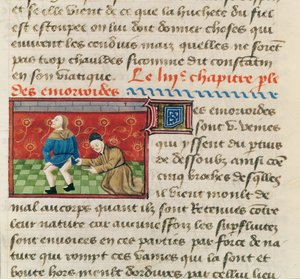 et se elle vient de ce que la huchete du fiel
est estoupee on lui doit donner choses qui
euurent les conduis maiz quelles ne soient
pas trop chauldes sicomme dit constatin
en son viatique. Le liii. chapitre ple
des emoroides
Les emoroides
sont v. venes
qui yssent du ptuis
de dessoubz ainsi coe
cinq broches desquelles
il vient moult de
mal au corps quant ilz sont retenues cotre
leur nature car aucuneffois les supfluitez
sont enuoiees en ces parties par force de na
ture qui rompt ces vaines qui la sont et
boute hors moult dordures par celluy lieu